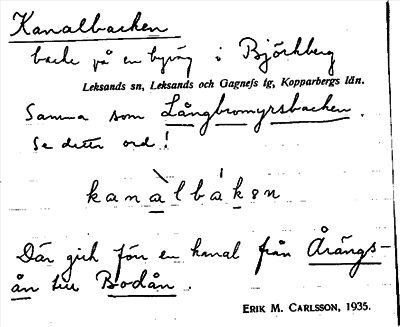 Kanalbacken
backe på en byväg i Björkberg
Leksands sn, Leksands och Gagnefs tg, Kopparbergs län.
Samma som Långbromyrsbacken.
Se detta ord!
kanàlbákɐn
Där gick förr en kanal från Årängs-
ån till Bodån.
ERIK M. CARLSSON, 1935.